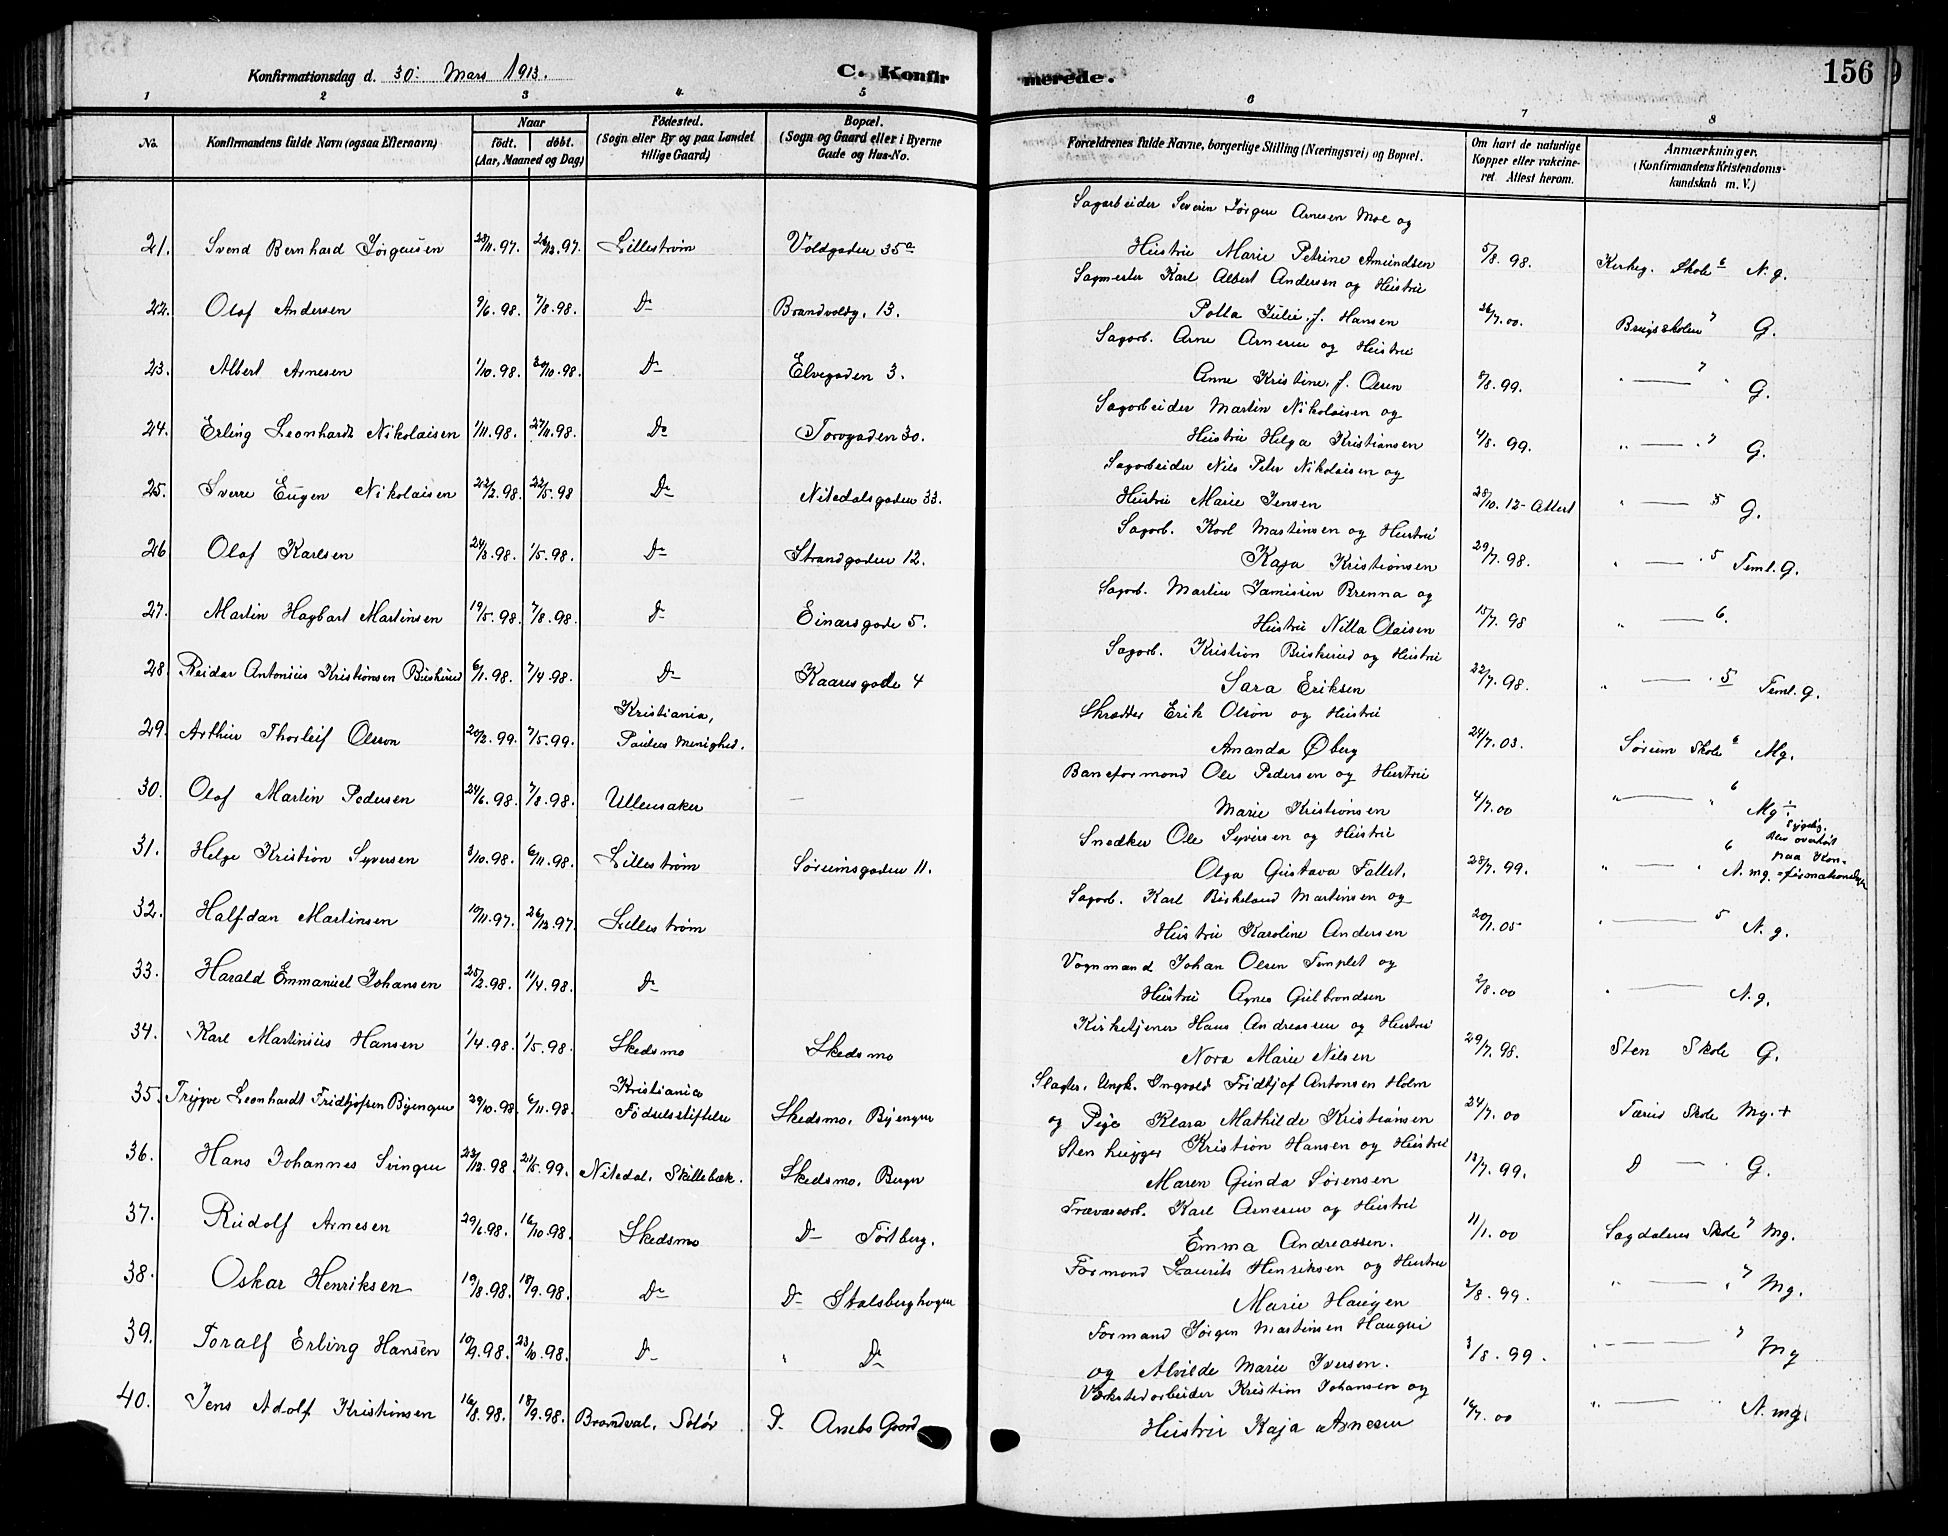 Konfirmationsdag d. 30. Mars 1913. C. Konfirmerede. 156
1 2 3 4 5 6 7 8
No. Konfirmandens fulde Navn (ogsaa Efternavn) Naar født. døbt. (Aar, Maaned og Dag) Födested. (Sogn eller By og paa Landet tillige Gaard) Bopæl. (Sogn og Gaard eller i Byerne Gade og Hus-No. Forældrenes fulde Navne, borgerlige Stilling (Næringsvei) og Bopæl. Om havt de naturlige Kopper eller vakcineret. Attest herom. Anmærkninger. (Konfirmandens Kristendomskundskab m. V.)
Sagarbeider Severin Jørgen Arnesen Moe og
21. Svend Bernhard Jørgensen 28/11.97. 26/12.97. Lillestrøm Voldgaden 35a Hustru Marie Petrine Amundsen 5/8.98. Kirkeg. Skole 6 N.g.
Sagmester Karl Albert Andersen og Hustru
22. Olaf Andersen 9/6.98. 7/8.98. Do Brandvoldg. 13. Polla Julie f. Hansen 26/7.00. Brugsskolen 7 G.
Sagarb. Arne Arnesen og Hustru
23. Albert Arnesen 1/10.98. 30/10.98. Do Elvegaden 3. Anne Kristine f. Olsen 8/8.99. " — 7 " G.
Sagarbeider Martin Nikolaisen og
24. Erling Leonhardt Nikolaisen 1/11.98. 27/11.98. Do Torvgaden 30. Hustru Helga Kristiansen 4/8.99. " — " 7 G.
Sagarbeider Nils Peter Nikolaisen og
25. Sverre Eugen Nikolaisen 22/2.98. 22/5.98 Do Nitedalsgaden 33. Hustru Marie Jensen 28/10.12- Attest " — 5 G.
Sagarb. Karl Martinsen og Hustru
26 Olaf Karlsen 24/3.98. 1/5.98. Do Strandgaden 12. Kaja Kristiansen 29/7.98. " — " 5 Teml.G.
Sagarb. Martin Jamissen Brenna og
27. Martin Hagbart Martinsen 19/5.98. 7/8.98. Do Einarsgade 5. Hustru Nilla Olaisen 15/7.98 " — 6.
Sagarb. Kristian Buskerud og Hustru
28 Reidar Antonius Kristiansen Buskerud 6/1.98. 7/4.98. Do Kaaresgade 4 Sara Eriksen 22/7.98. " — " 5 Teml.G.
Kristiania, Skrædder Erik Olson og Hustru
29. Arthur Thorleif Olsson 20/2.99. 7/5.99. Paulus Menighed. Amanda Øberg 24/7.03. Sørum Skole 6 Mg.
Baneformand Ole Pedersen og Hustru
30. Olaf Martin Pedersen 24/6.98. 7/8.98. Ullensaker — Marie Kristiansen 4/7.00 " — " 6 Mg.
Snedker Ole Syversen og Hustru Sygelig. Blev overhørt
31. Helge Kristian Syversen 3/10.98. 6/11.98. Lillestrøm Sørumsgaden 11. Olga Gustava Fallet. 28/7.99. " — " 6 N.mg. paa Konfirmationsdagen
Sagarb. Karl Birkeland Martinsen og
32. Halfdan Martinsen 10/11.97. 26/12.97. Lillestrøm Hustru Karoline Andersen 20/1.05 " — 5 N.g.
Vognmand Johan Olsen Templet og
33. Harald Emmanuel Johansen 25/2.98. 11/4.98. Do Hustru Agnes Gulbrandsen 2/8.00 " — N.g.
Kirketjener Hans Andreassen og Hustru
34. Karl Martinius Hansen 1/4.98. 1/5.98. Skedsmo Skedsmo Nora Marie Nilsen 29/7.98. Sten Skole G.
Kristiania Slagter. Ungk. Ingvald Fridtjof Antonsen Holm
35. Trygve Leonhardt Fridtjofsen Byengen 29/10.98 6/11.98. Fødselsstiftelse Skedsmo, Byengen og Pige Klara Mathilde Kristiansen 24/7.00 Tærud Skole Mg.+
Stenhugger Kristian Hansen og Hustru
36. Hans Johannes Svingen 23/12.98. 21/5.99. Nitedal, Skillebæk. Skedsmo, Berger Maren Gunda Sørensen 13/7.99. D — G.
Trævarearb. Karl Arnesen og Hustru
37. Rudolf Arnesen 29/6.98. 16/10.98. Skedsmo Do Tørtberg. Emma Andreassen. 11/1.00 Sagdalens Skole 7 Mg.
Formand Laurits Henriksen og Hustru
38. Oskar Henriksen 19/8.98. 18/9.98. Do Do Stalsberghagen Marie Haugen 2/8.99. " — " 7 Mg.
Formand Jørgen Martinsen Haugen
39. Toralf Erling Hansen 10/9.98. 23/10.98. Do " Do og Alvilde Marie Iversen. 3/8.99. " — 7 Mg
Værkstedarbeider Kristian Johansen og
40. Jens Adolf Kristiansen 16/8.98. 18/9.98. Brandval, Solør D. Aamodt Gaard Hustru Kaja Arnesen 14/7.00 " — " N.mg.